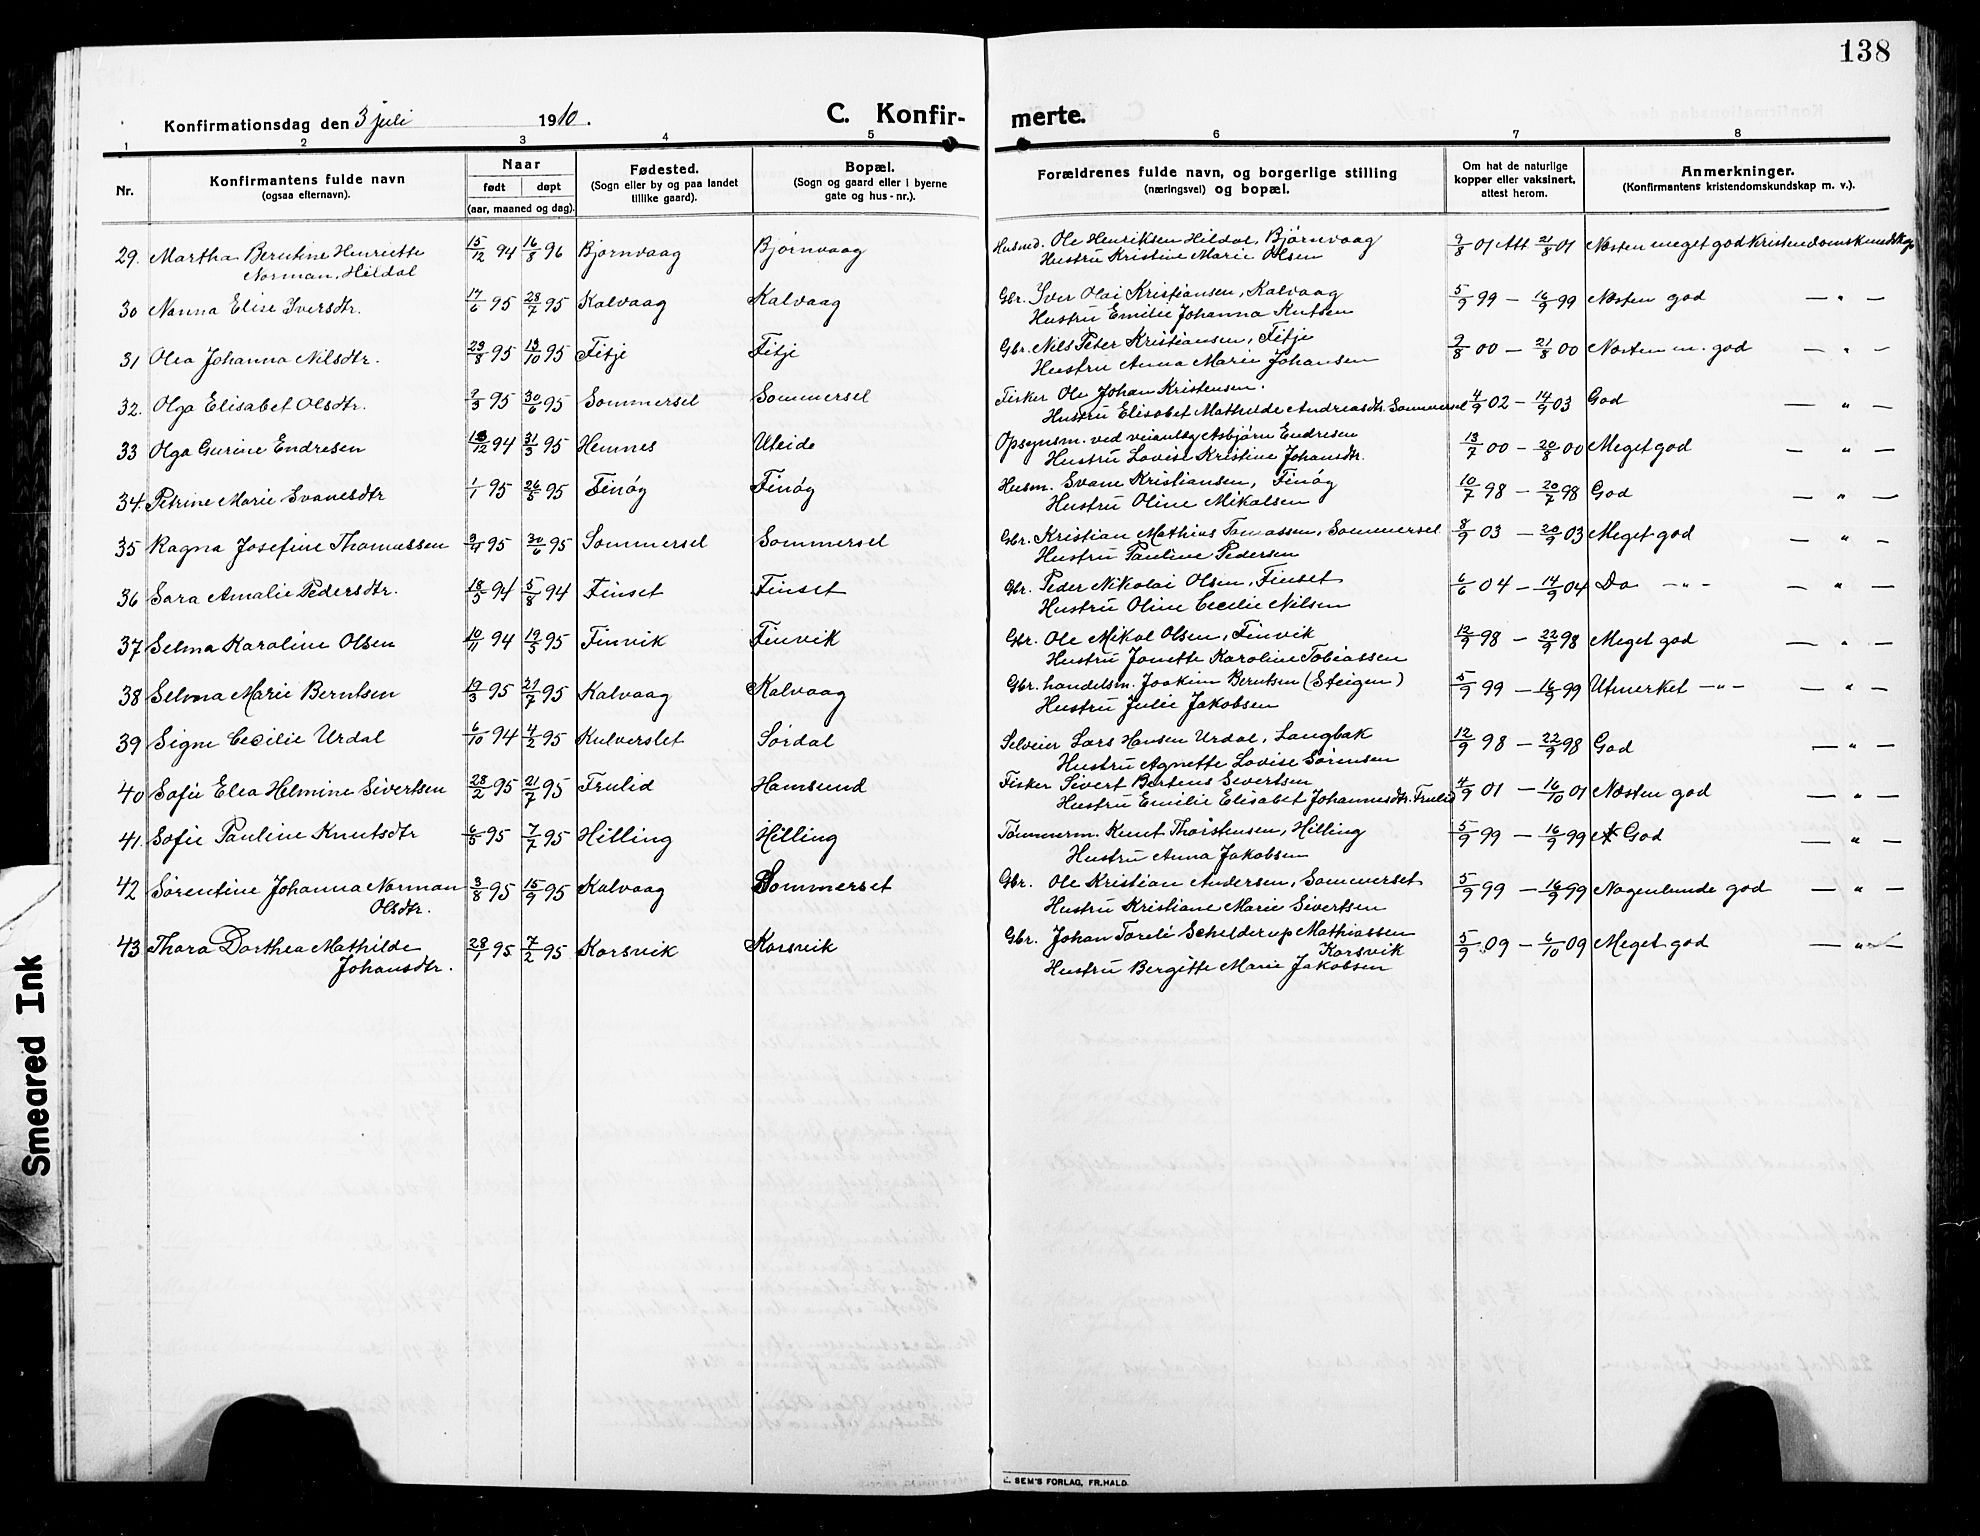 138
Konfirmationsdag den 3 juli 1910.
C. Konfirmerte.
1 2 3 4 5 6 7 8
Nr.
Konfirmantens fulde navn
(ogsaa efternavn).
Naar
født døpt
(aar, maaned og dag).
Fødested.
(Sogn eller by og paa landet
tillike gaard).
Bopæl.
(Sogn og gaard eller i byerne
gate og hus-nr.).
Forældrenes fulde navn, og borgerlige stilling
(næringsvei) og bopæl.
Om hat de naturlige
kopper eller vaksinert,
attest herom.
Anmerkninger.
(Konfirmantens kristendomskundskap m. v.).
29. Martha Berntine Henriette 15/12 94 16/8 96 Bjørnvaag Bjørnvaag Husmd. Ole Henriksen Hildal, Bjørnvaag 9/8 01 Att 21/8 01 Næsten meget god Kristendomskundskap
Norman Hildal Hustru Kristine Marie Olsen
30 Nanna Elise Iversdtr. 17/6 95 28/7 95 Kalvaag Kalvaag Gbr. Iver Olai Kristiansen, Kalvaag 5/9 99 — 16/9 99 Næsten god — " —
Hustru Emilie Johanna Knutsen
31 Olea Johanna Nilsdtr. 23/8 95 13/10 95 Fitje Fitje Gbr. Nils Peter Kristiansen, Fitje 9/8 00 — 21/8 00 Næsten m. god — " —
Hustru Anna Marie Johansen
32. Olga Elisabet Olsdtr. 9/3 95 30/6 95 Sommersel Sommersel Fisker Ole Johan Kristensen. 4/9 02 — 14/9 03 God — " —
Hustru Elisabet Mathilde Andreasdtr. Sommersel
33 Olga Gurine Endresen 13/12 94 31/3 95 Hemnes Uleide Opsynsm. ved veianlæg Asbjørn Endresen 13/7 00 — 20/8 00 Meget god — " —
Hustru Lovise Kristine Johansdtr.
34. Petrine Marie Svanesdtr 1/1 95 26/5 95 Finøy Finøy Husm. Svane Kristiansen, Finøy 10/7 98 — 20/7 98 God — " —
Hustru Oline Mikalsen
35 Ragna Josefine Thomassen 3/4 95 30/6 95 Sommersel Sommersel Gbr. Kristian Mathias Tomassen, Sommersel 8/9 03 — 20/9 03 Meget god — " —
Hustru Pauline Pedersen
36 Sara Amalie Pedersdtr. 18/5 94 5/8 94 Finset Finset Gbr. Peder Nikolai Olsen, Finset 6/6 04 — 14/9 04 Do — " — — " —
Hustru Oline Cecilie Nilsen
37 Selma Karoline Olsen 10/11 94 19/5 95 Finvik Finvik Gbr. Ole Mikal Olsen, Finvik 12/9 98 — 22/9 98 Meget god — " —
Hustru Jonette Karoline Tobiassen
38 Selma Marie Berntsen 19/3 95 21/7 95 Kalvaag Kalvaag Gbr. handelsm. Joakim Berntsen (Steigen) 5/9 99 — 16/9 99 Utmerket — " — — " —
Hustru Julie Jakobsen
39 Signe Cecilie Urdal 6/10 94 4/2 95 Kulverslet Sørdal Selveier Lars Hansen Urdal, Langbak 12/9 98 — 22/9 98 God — " —
Hustru Agnette Lovise Sørensen
40 Sofie Elea Helmine Sivertsen 28/2 95 21/7 95 Frulid Hamsund Fisker Sivert Bertens Sivertsen 4/9 01 — 16/10 01 Næsten god — " —
Hustru Emilie Elisabet Johannesdtr. Frulid
41. Sofie Pauline Knutsdtr 6/5 95 7/7 95 Hilling Hilling Tømmerm. Knut Thorstensen, Hilling 5/9 99 — 16/9 99 God — " —
Hustru Anna Jakobsen
42 Sørentine Johanna Norman 3/8 95 15/9 95 Kalvaag Sommerset Gbr. Ole Kristian Andersen, Sommerset 5/9 99 — 16/9 99 Nogenlunde god — " —
Olsdtr. Hustru Kristiane Marie Sivertsen
43 Thora Dorthea Mathilde 28/1 95 7/2 95 Korsvik Korsvik Gbr. Johan Toreli Schelderup Mathiassen 5/9 09 — 6/10 09 Meget god — " —
Johansdtr. Korsvik
Hustru Bergitte Marie Jakobsen
Smeared Ink
E. SEM'S FORLAG, FR.HALD.